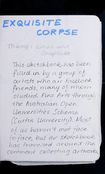 EXQUISITE
CORPSE
This sketchbook has been
filled in by a group of
artists who are treasured
friends, many of whom
studied Fine Arts through
the Australian Open
Universities Scheme
(Curtin University). Most
of us haven't met face
to face, but our sketchbook
has travelled around the
continent collecting artworks